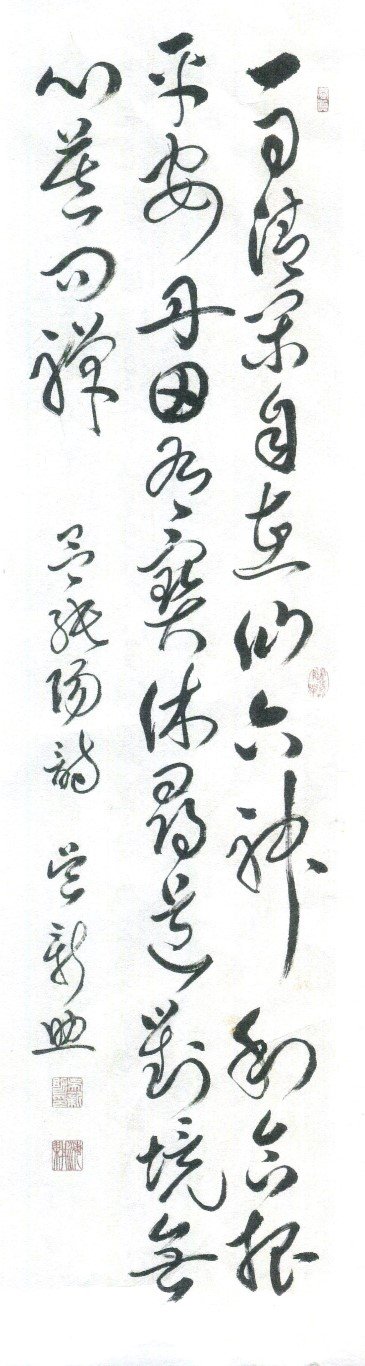 一日清閑自在仙六神和合報
平安丹田有寶休尋道對境無
心莫問禪 呂純陽詩